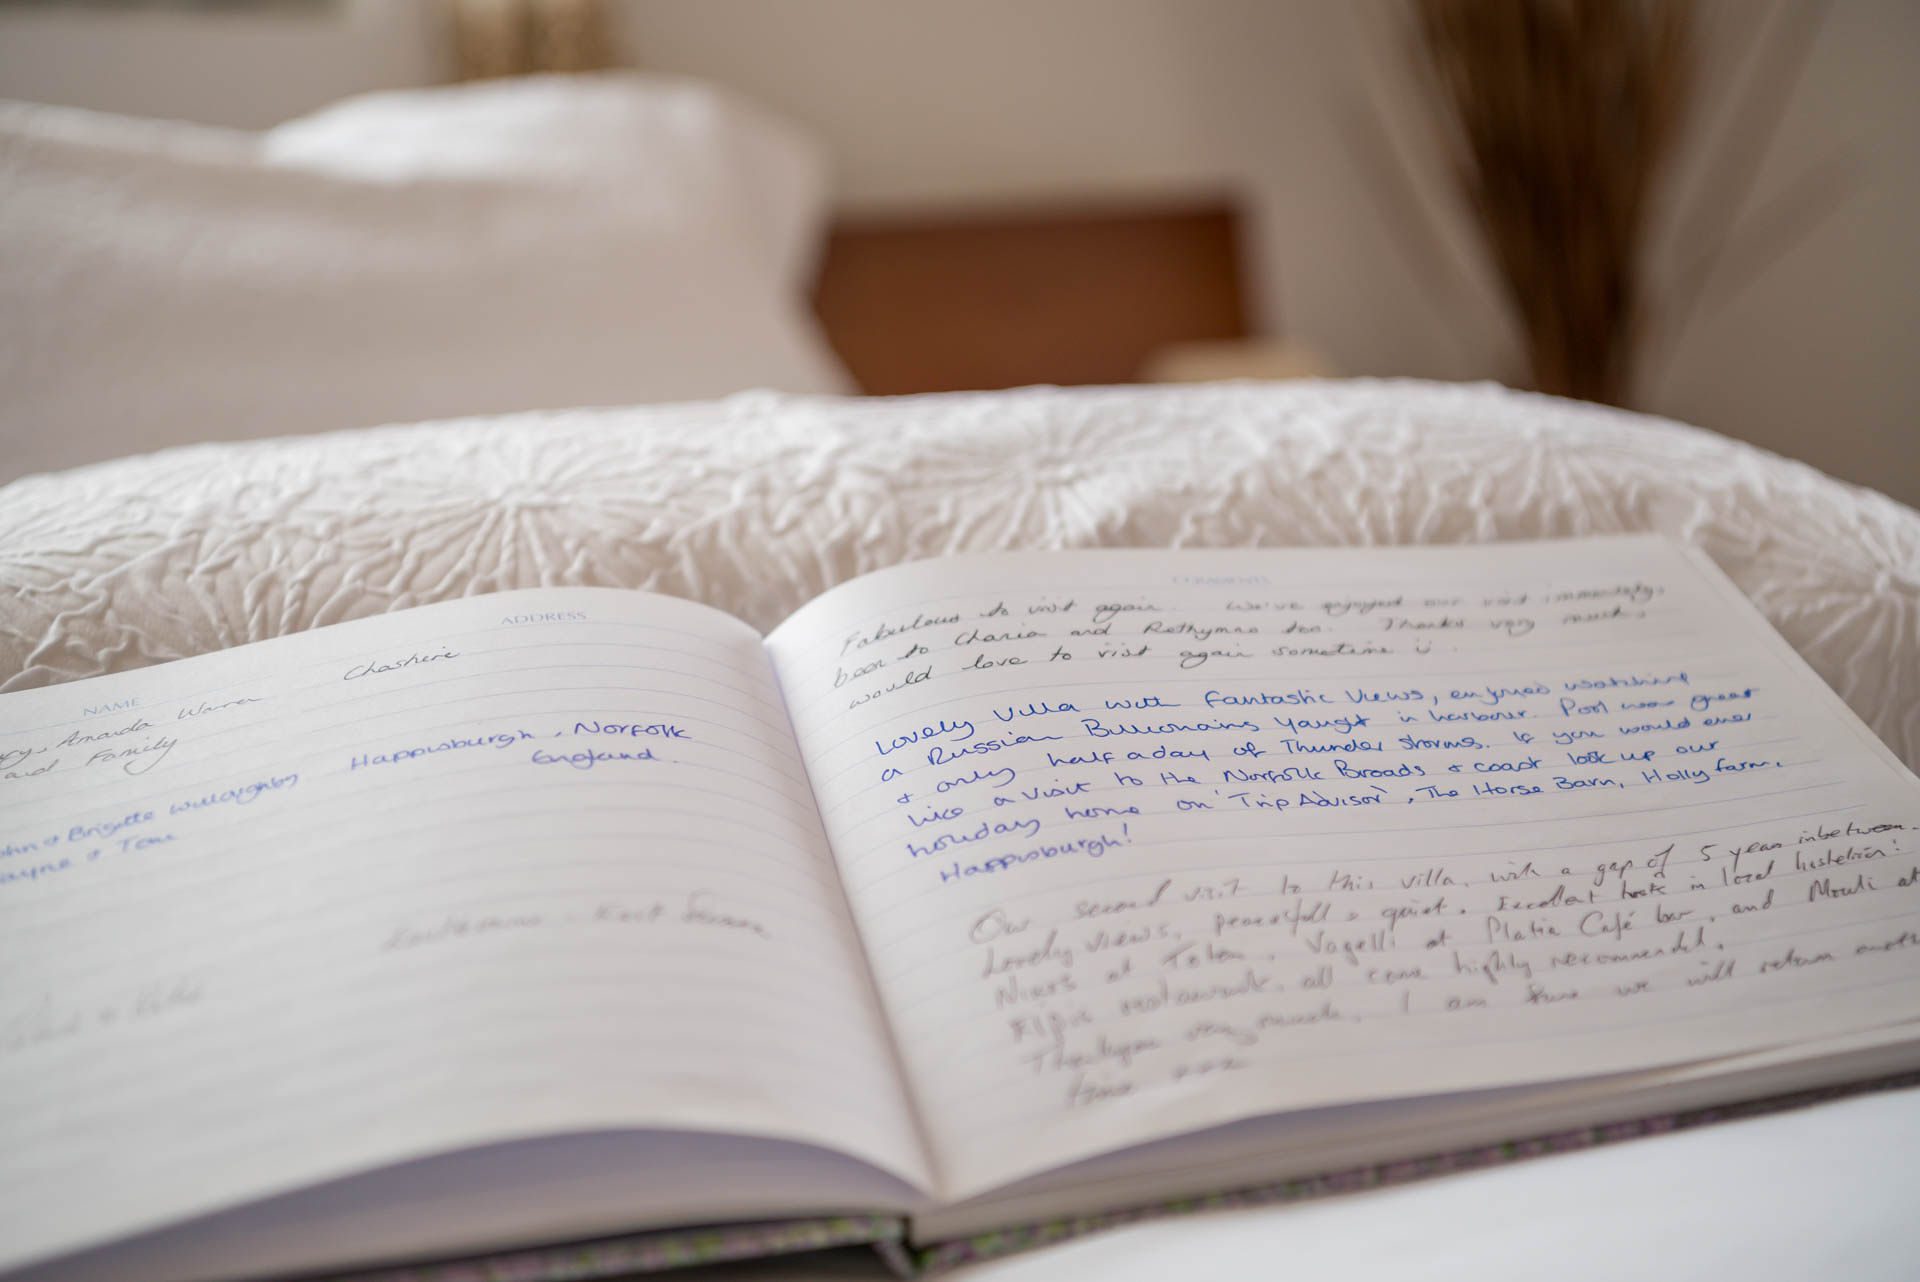 NAME
ADDRESS
Amanda Warren
Cheshire
and Family
John & Brigitte Willoughby
Happisburgh, Norfolk
England.
Wayne & Toni
COMMENTS
Fabulous to visit again. We've enjoyed our visit immensely,
been to Chania and Rethymno too. Thanks very much,
would love to visit again sometime
Lovely Villa with Fantastic Views, enjoyed watching
a Russian Billionairs Yaught in harbour. Pool was great
& only half a day of Thunder storms. If you would ever
like a visit to the Norfolk Broads & coast look up our
holiday home on 'Trip Advisor', The Horse Barn, Holly farm,
Happisburgh!
Our second visit to this villa, with a gap of 5 years inbetween.
Lovely views, peacefull & quiet. Excellent hosts in local
Nikos at Vagelli at Platia Café bar, and Mouli at
restaurant, all come highly recommended.
very much, I am sure we will return